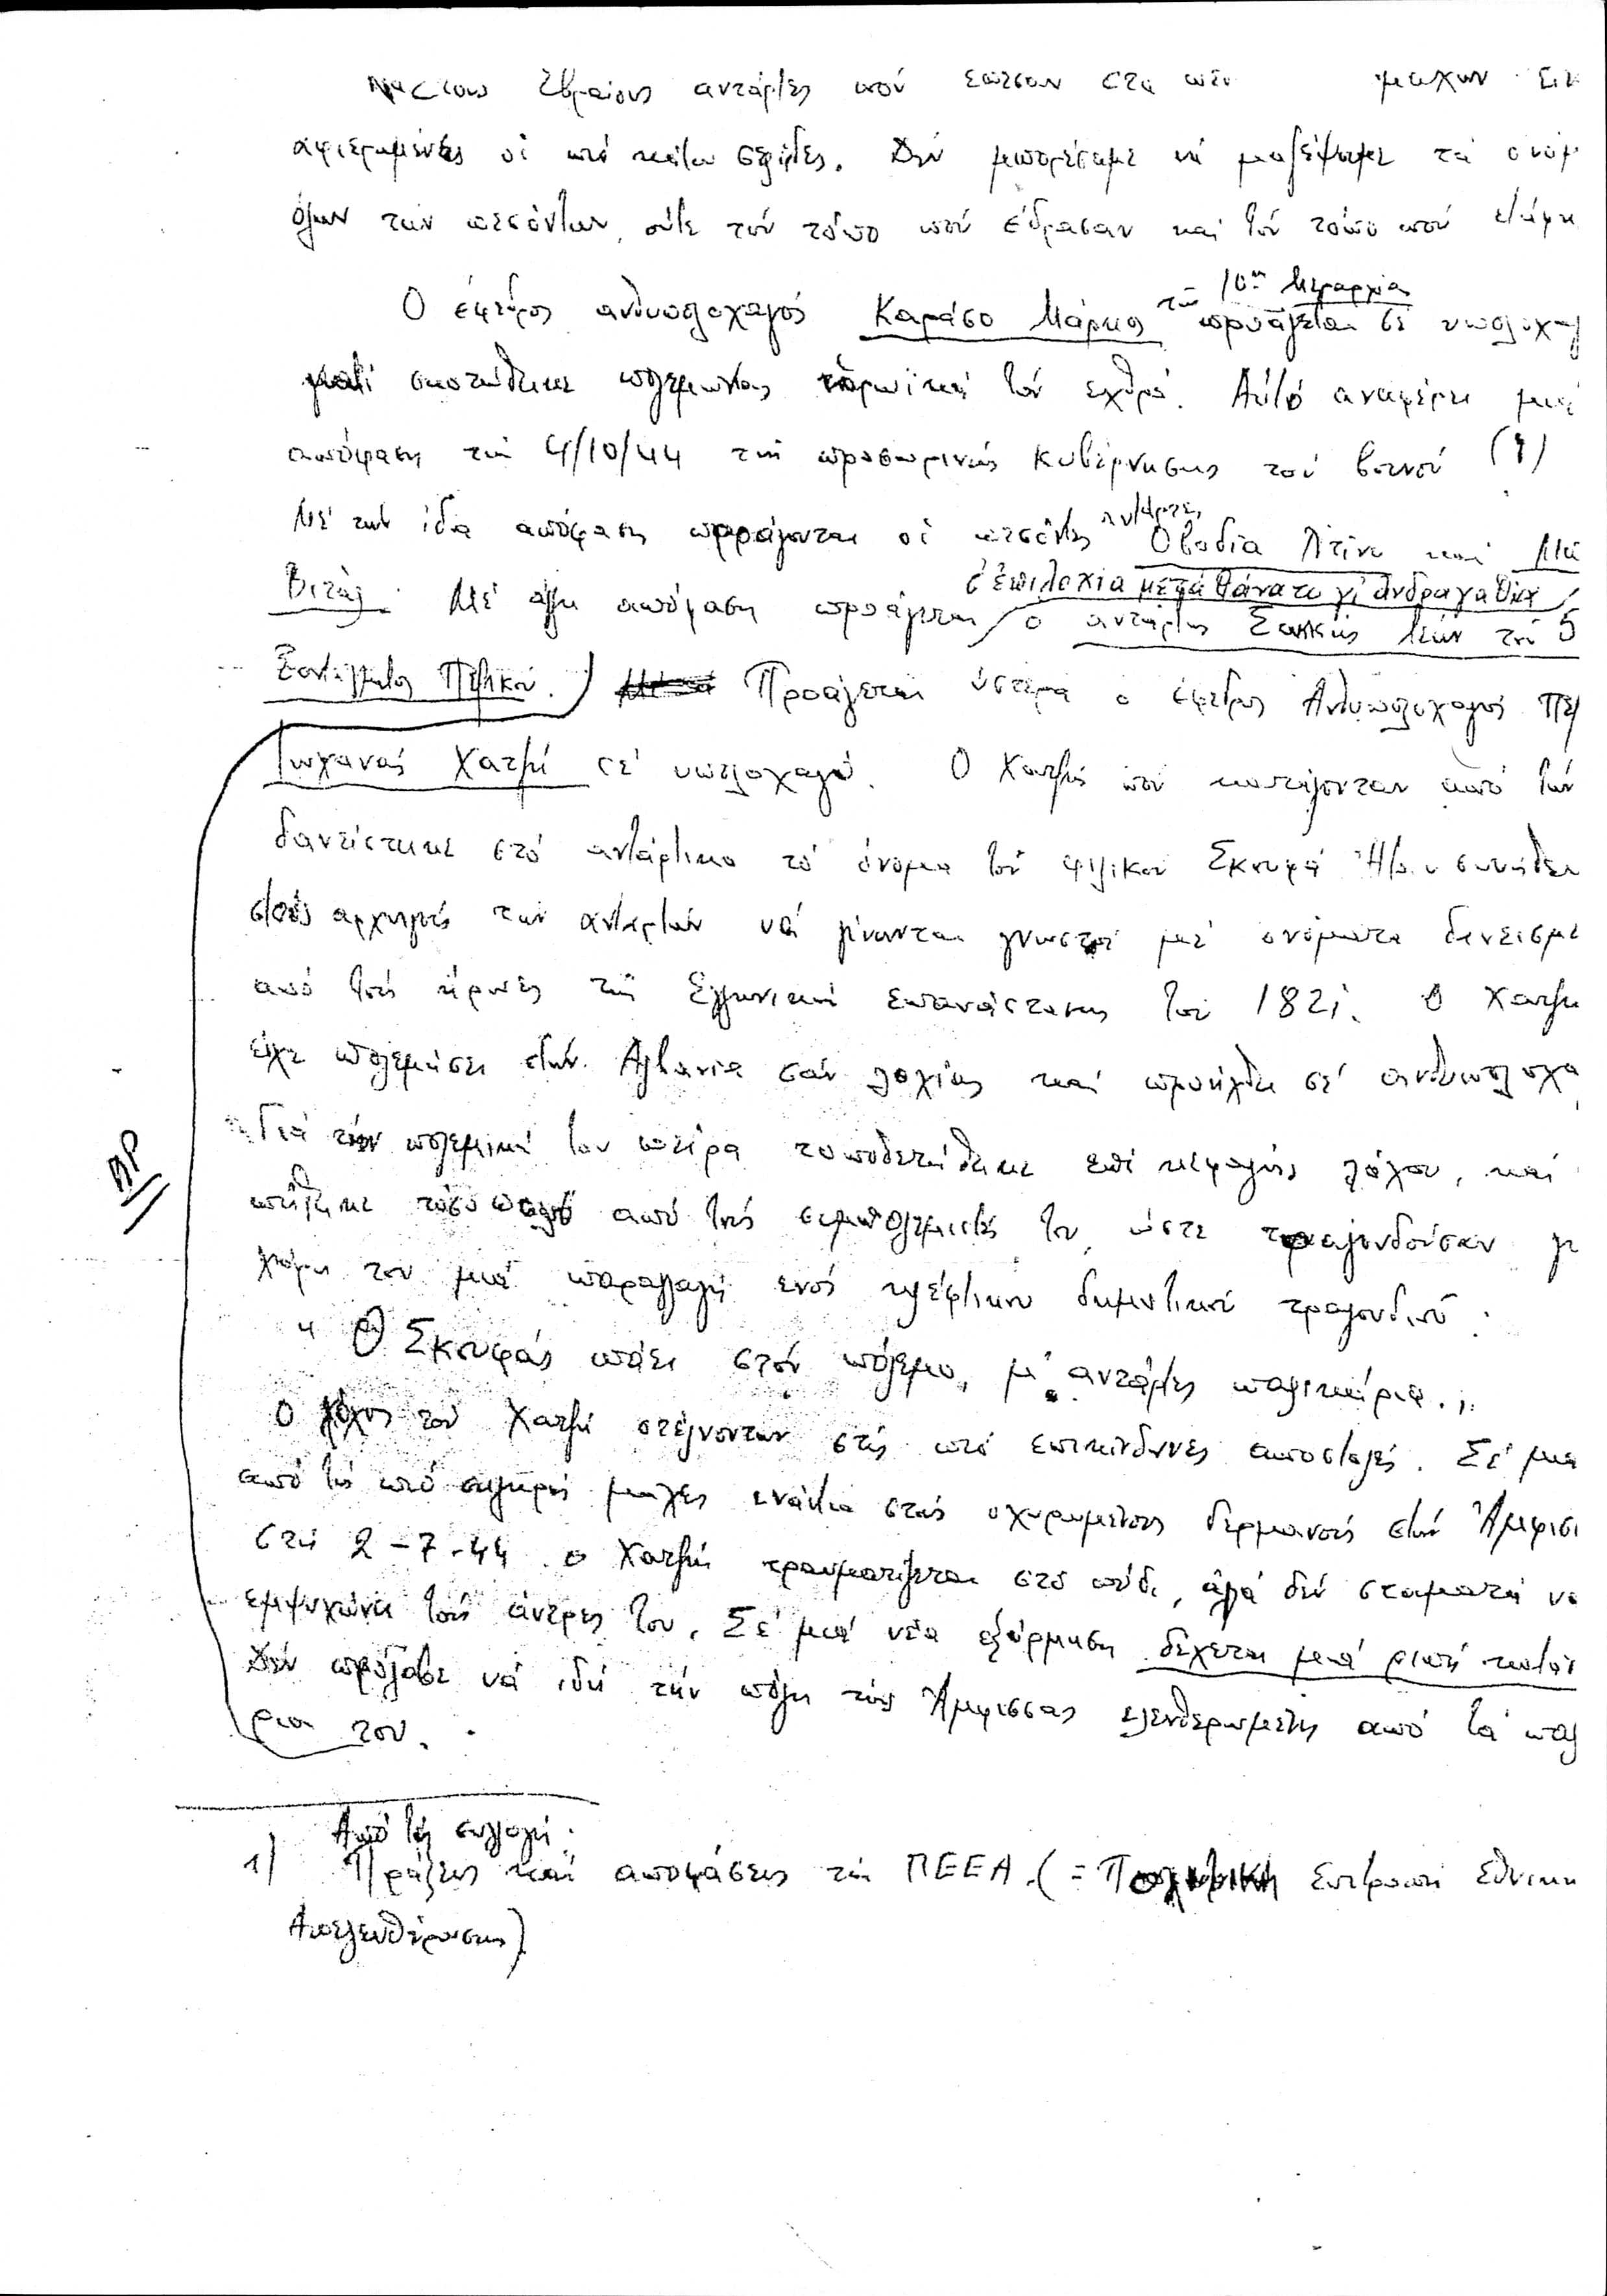 στους Εβραίους αντάρτες πού έπεσαν στα μαχών
αφιερωμένες οί πιό κάτω σελίδες. Δέν μπορέσαμε νά μαζέψωμε τά ονόμ
όλων τών πεσόντων, ούτε τόν τόπο πού έδρασαν καί τόν τόπο πού
τής 10η Μεραρχία
Ο έφεδρος ανθυπολοχαγός Καράσο Μάρκος προάγεται σέ υπολοχαγ
γιατί σκοτώθηκε πολεμώντας ηρωϊκά τόν εχθρό. Αυτό αναφέρει μιά
απόφαση τής 4/10/44 τής προσωρινής Κυβέρνησης τού βουνού (1)
αντάρτες
Μέ τήν ίδια απόφαση προάγονται οί πεσόντες Οβαδία Λτίνο καί Μα
σ' επιλοχία μετά θάνατο γι' ανδραγαθία
Βιτάλ. Μέ άλλη απόφαση προάγεται ο αντάρτης Σακκής Λεών τού 5
Συντάγματος Πεζικού. Προάγεται ύστερα ο έφεδρος Ανθυπολοχαγός
Γιωχανάς Χατζή σέ υπολοχαγό. Ο Χατζής πού κατάγονταν από τήν
δανείστηκε στό αντάρτικο τό όνομα τού φιλικού Σκουφά Ήταν συνήθει
στούς αρχηγούς τών ανταρτών νά γίνωνται γνωστοί μέ ονόματα δανεισμέ
από τούς ήρωες τής Ελληνικής επανάστασης τού 1821. Ο Χατζή
είχε πολεμήσει στήν Αλβανία σάν λοχίας καί προήχθη σέ ανθυπολοχα
Γιά τήν πολεμική του πείρα τοποθετήθηκε επί κεφαλής λόχου, καί
τόσο πολύ από τούς συμπολεμιστές του, ώστε τραγουδούσαν γι
χάρη του μιά παραλλαγή ενός κλέφτικου δημοτικού τραγουδιού.
" Ο Σκουφάς πάει στόν πόλεμο, μ' αντάρτες παλικάρια.,,
Ο λόχος τού Χατζή στέλνονταν στίς πιό επικίνδυνες αποστολές. Σέ μια
από τίς πιό σκληρές μάχες ενάντια στούς οχυρωμένους Γερμανούς στήν Άμφισ
στίς 2-7-44 ο Χατζής τραυματίζεται στό πόδι, αλλά δέν σταματά να
εμψυχώνει τούς άντρες του. Σέ μιά νέα εξόρμηση δέχεται μιά ριπή
Δέν πρόλαβε νά ιδή τήν πόλη τής Άμφισσας ελευθερωμένη από τά παλ
ρια του.
ΒΡ
Από τή συλλογή.
1) Πράξεις καί αποφάσεις τής ΠΕΕΑ. (= Πολιτική Επιτροπή Εθνική
Απελευθέρωσης)